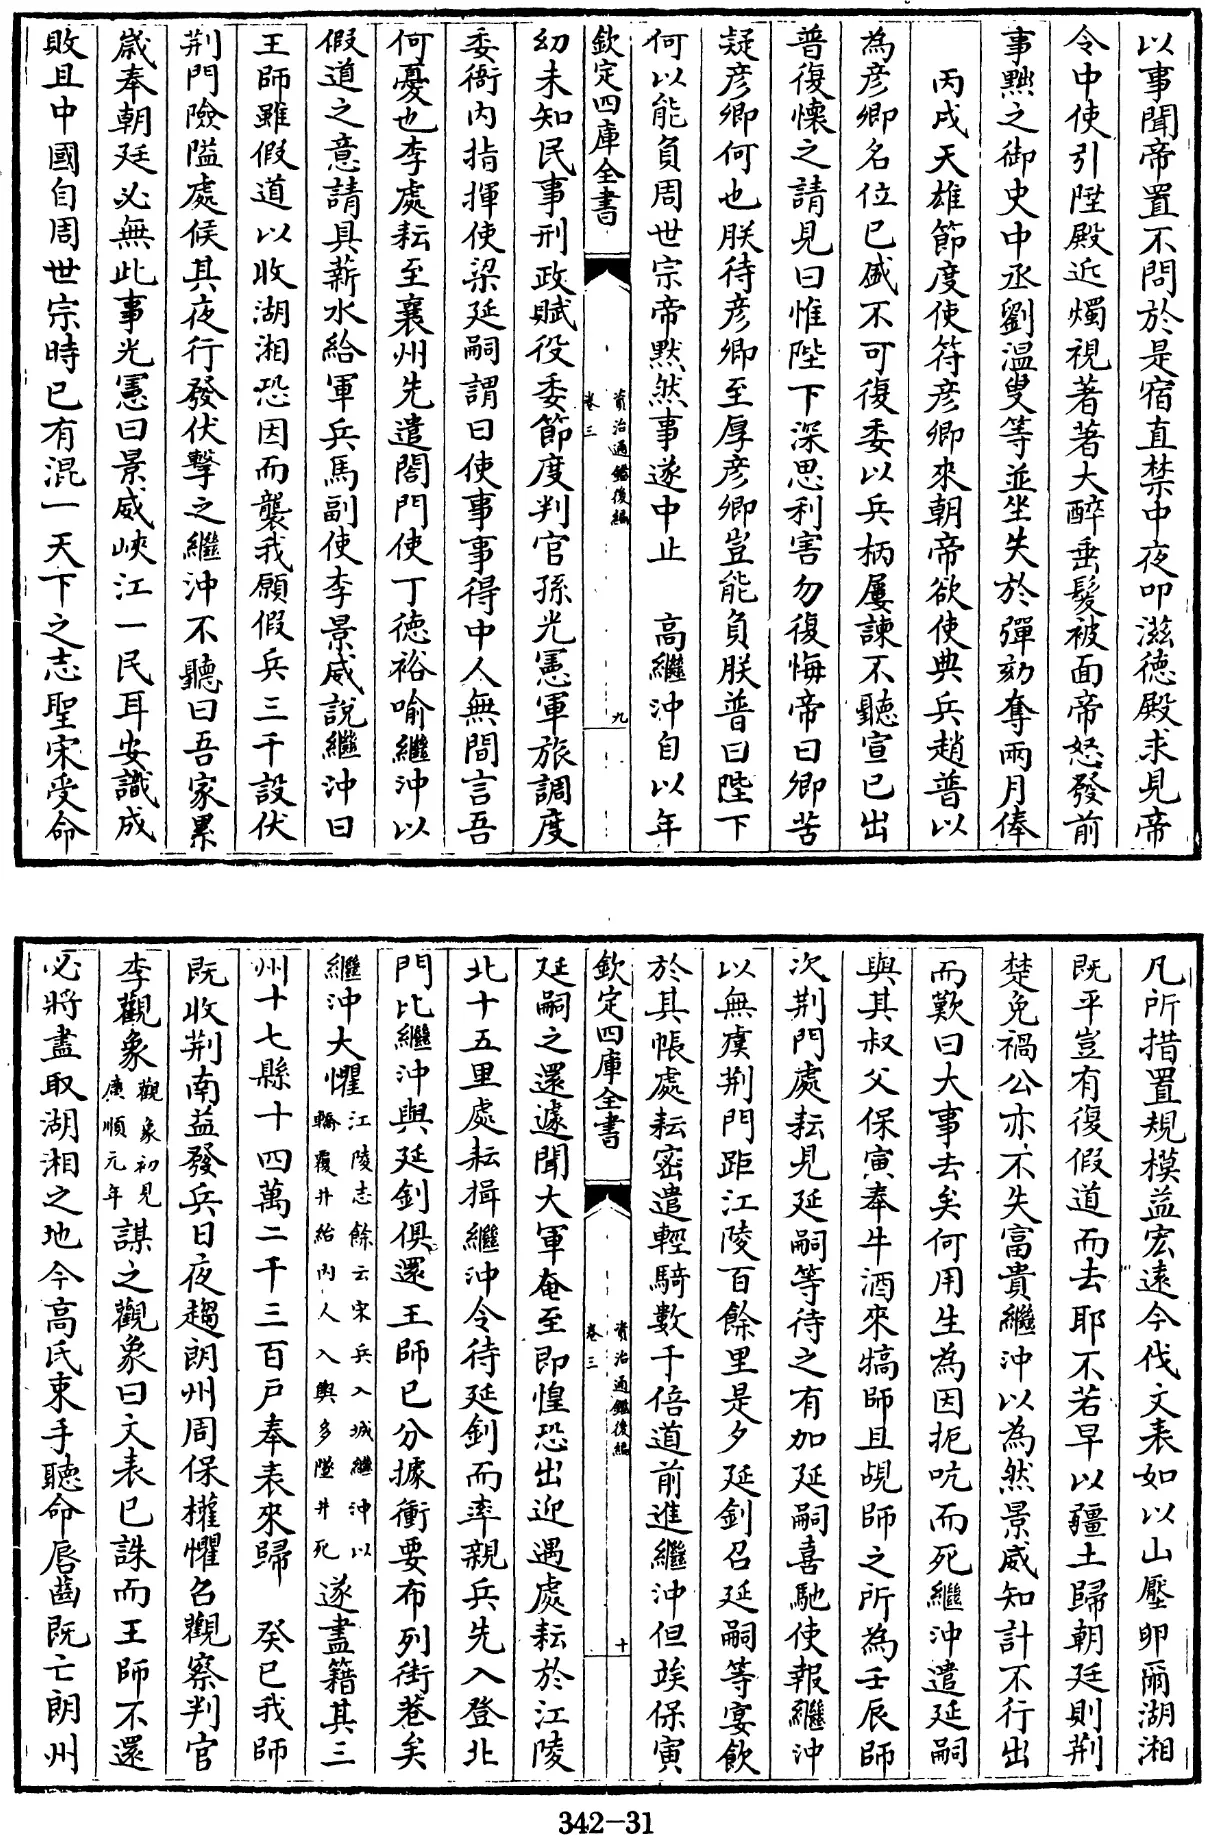 以事聞帝置不問於是宿直禁中夜叩滋德殿求見帝
令中使引陞殿近燭視著著大醉垂髮被面帝怒發前
事黜之御史中丞劉溫叟等並坐失於彈劾奪兩月俸
丙戌天雄節度使符彥卿來朝帝欲使典兵趙普以
為彥卿名位已盛不可復委以兵柄屢諫不聽宣已出
普復懷之請見曰惟陛下深思利害勿復悔帝曰卿苦
疑彥卿何也朕待彥卿至厚彥卿豈能負朕普曰陛下
何以能負周世宗帝默然事遂中止　高繼沖自以年
欽定四庫全書
資治通鑑後編
卷三
九
幼未知民事刑政賦役委節度判官孫光憲軍旅調度
委衙内指揮使梁延嗣謂曰使事事得中人無間言吾
何憂也李處耘至襄州先遣閤門使丁德裕喻繼沖以
假道之意請具薪水給軍兵馬副使李景威說繼沖曰
王師雖假道以收湖湘恐因而襲我願假兵三千設伏
荆門險隘處候其夜行發伏擊之繼沖不聽曰吾家累
歲奉朝廷必無此事光憲曰景威峽江一民耳安識成
敗且中國自周世宗時已有混一天下之志聖宋受命
凡所措置規模益宏遠今伐文表如以山壓卵爾湖湘
既平豈有復假道而去耶不若早以疆土歸朝廷則荆
楚免禍公亦不失富貴繼沖以為然景威知計不行出
而歎曰大事去矣何用生為因扼吭而死繼沖遣延嗣
與其叔父保寅奉牛酒來犒師且覘師之所為壬辰師
次荆門處耘見延嗣等待之有加延嗣喜馳使報繼沖
以無虞荆門距江陵百餘里是夕延釗召延嗣等宴飲
於其帳處耘密遣輕騎數千倍道前進繼沖但竢保寅
欽定四庫全書
資治通鑑後編
卷三
十
延嗣之還遽聞大軍奄至即惶恐出迎遇處耘於江陵
北十五里處耘揖繼沖令待延釗而率親兵先入登北
門比繼沖與延釗俱還王師已分據衝要布列街巷矣
繼沖大懼江陵志餘云宋兵入城繼沖以轎覆井紿内人入輿多墮井死遂盡籍其三
州十七縣十四萬二千三百戸奉表來歸　癸巳我師
既收荆南益發兵日夜趨朗州周保權懼召觀察判官
李觀象觀象初見廣順元年謀之觀象曰文表已誅而王師不還
必將盡取湖湘之地今高氏束手聽命唇齒既亡朗州
342-31